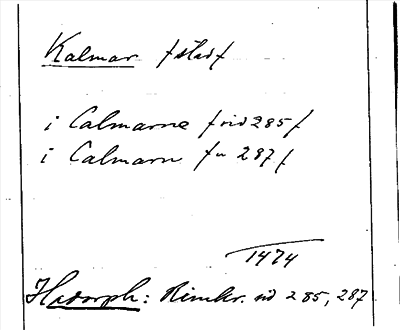 Kalmar /stad/
i Calmarne /sid 285/
i Calmarn /" 287/
1474
Hadorph: Rimkr. sid 285, 287